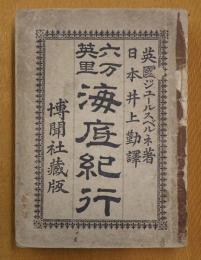 英國ジユールスベルネ著
日本井上勤譯
六万英里
海底紀行
博聞社藏版